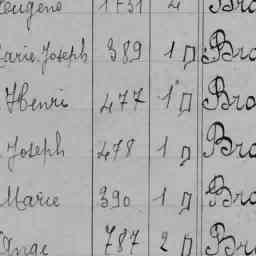 Eugène 1731 2 Bro
Marie Joseph 389 1 D Bro
Henri 477 1 D Bro
Joseph 478 1 D Bro
Marie 390 1 D Bro
Ange 787 2 D Bro